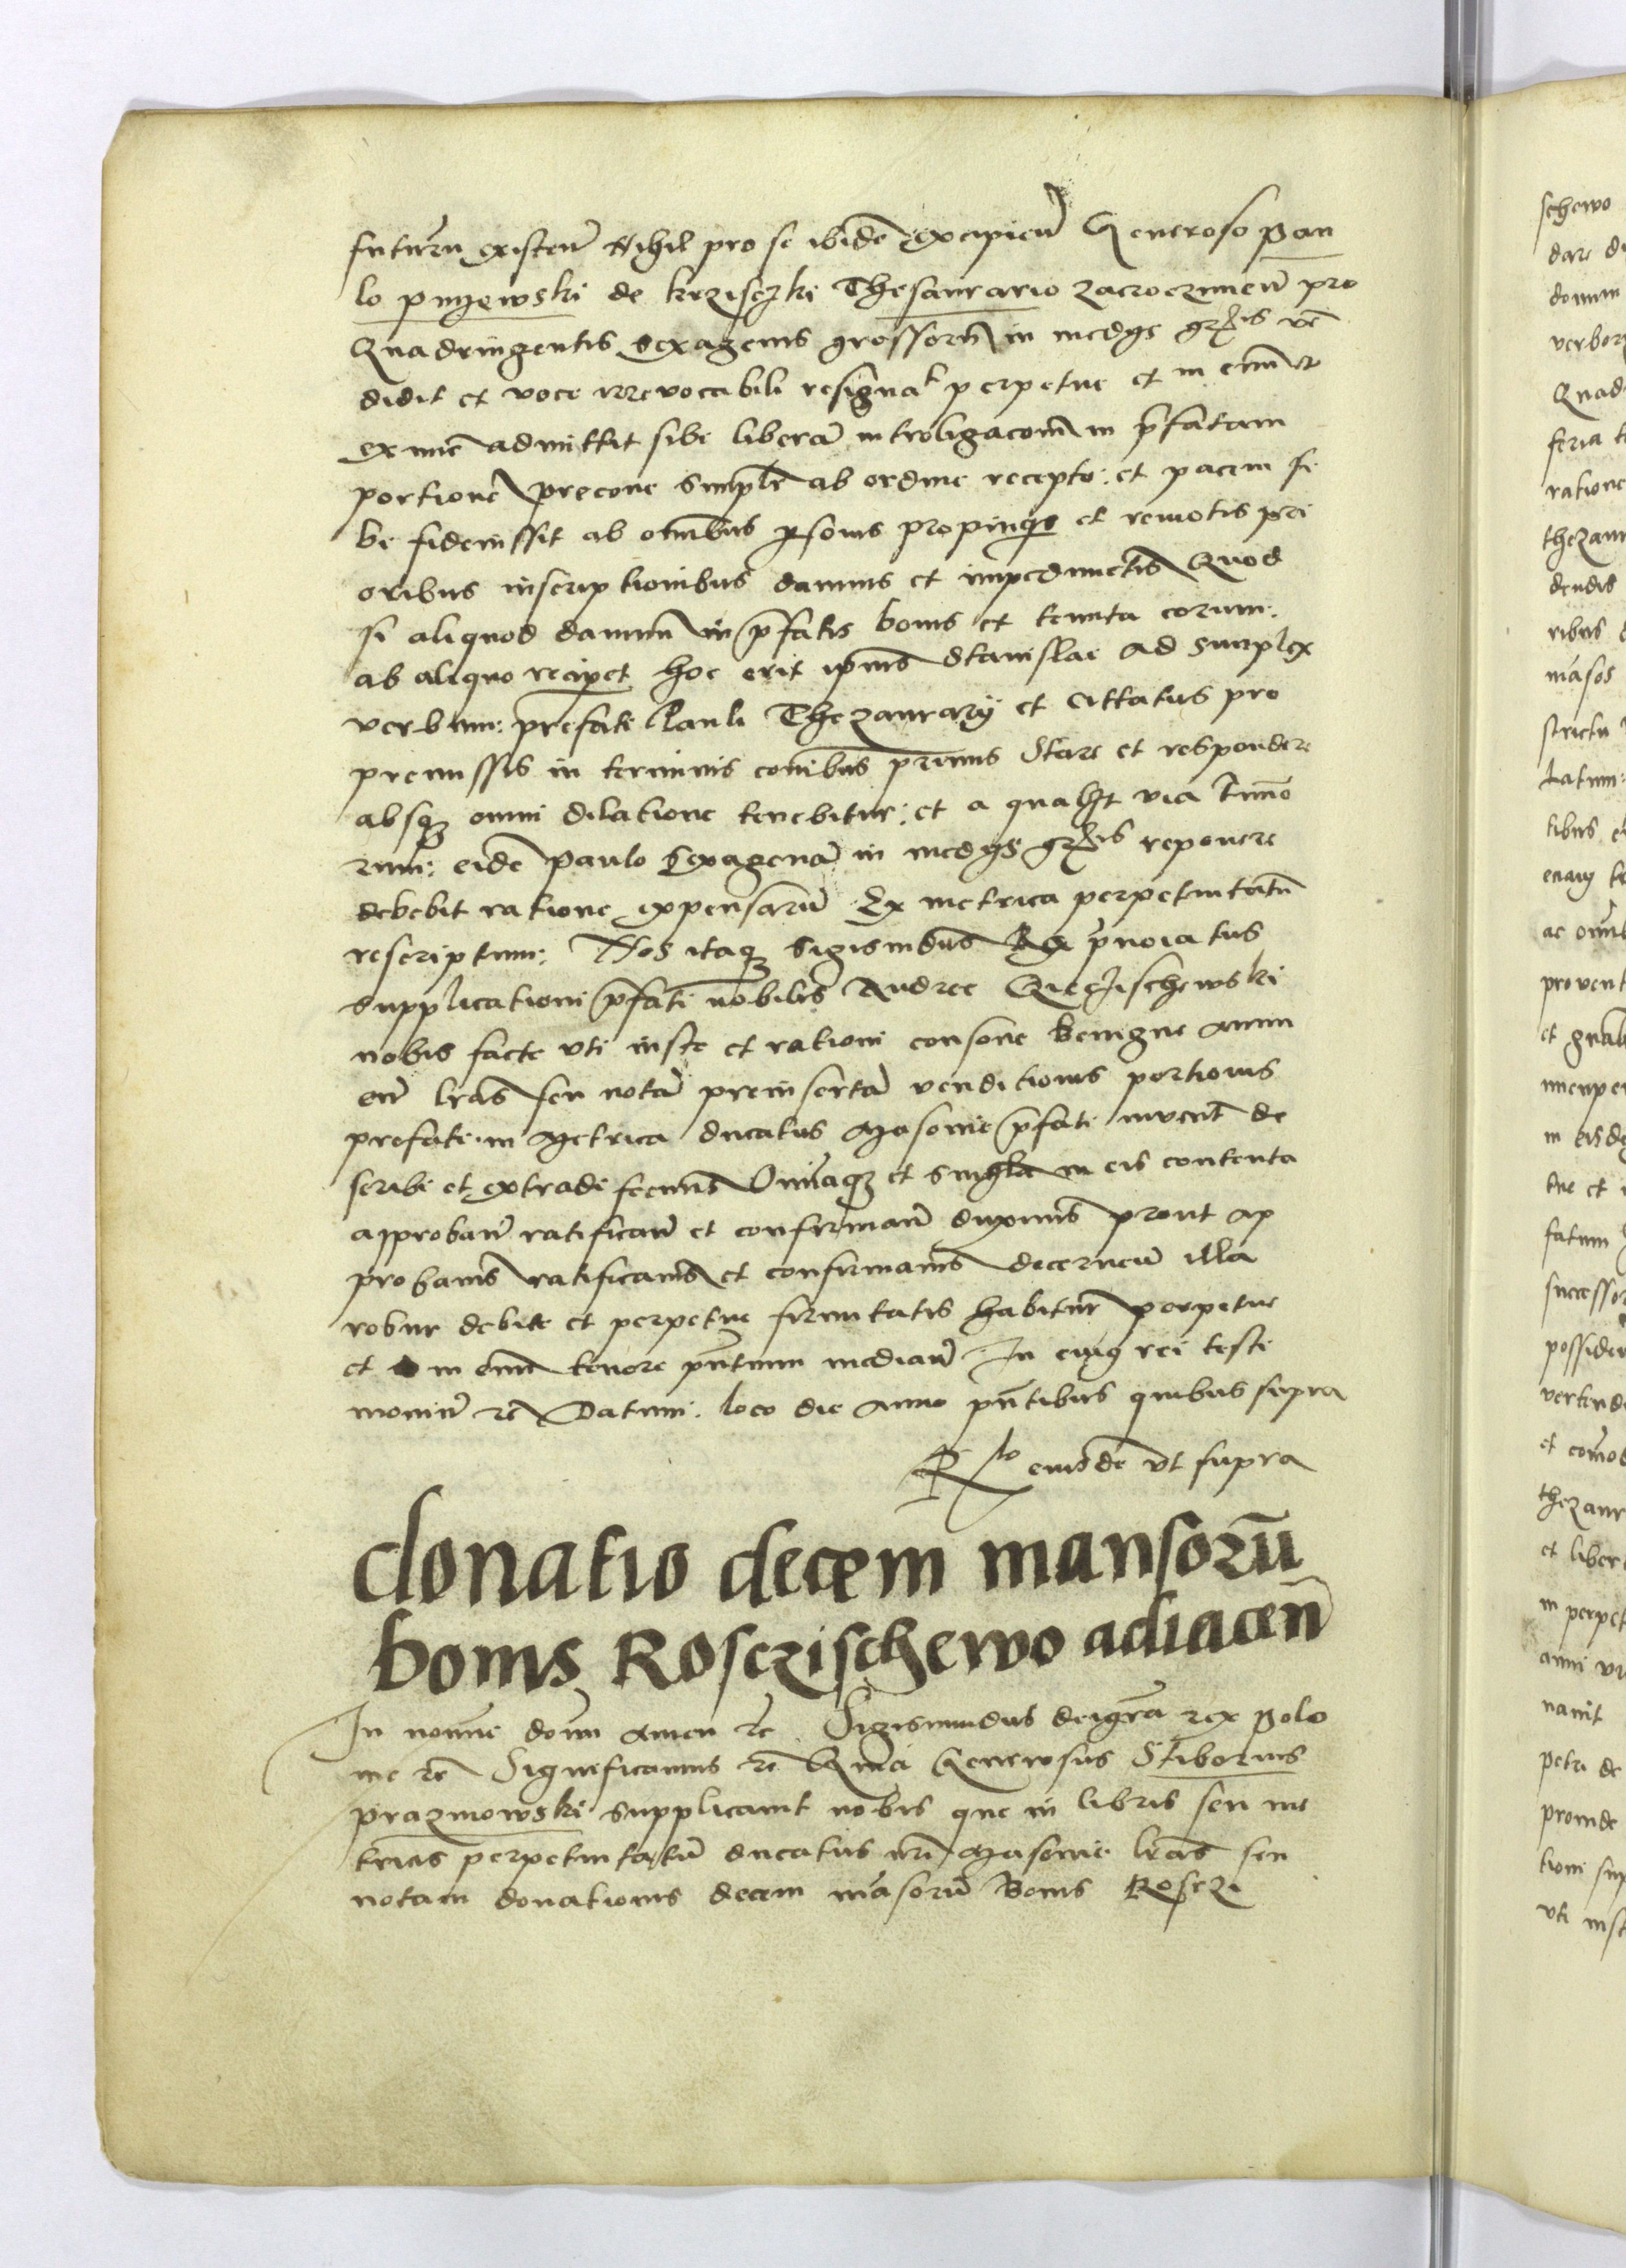 futurũ existeñ Nihil pro se ibidẽ excipieñ Generoso Pau
lo pnyewski de krzisczki Thesaurario zacroczimeñ pro
Quadringentis sexagenis grossorũ in medys grossis vẽ
didit et voce irrevocabili resignat perpetue et in evum et
ex nunc admittit sibi liberã introligacõm in p̃fatam
portionẽ precone simplr̃ ab ordine recepto: et pacem si
bi fideiussit ab om̃ibus psonis propinqs et remotis pri
oribus inscriptionibus damnis et impedimẽtis Quod
si aliquod damnũ in p̃fatis bonis et tenuta eorum:
ab aliquo reciperet hoc erit ip̃ius Stanislai ad simplex
verbum: prefati Pauli Thezaurary et Cittatus pro
premissis in terminis com̃ibus primis Stare et respondere
absq omni dilatione tenebitur: et a qualꝫt via t̃mino
rum: eidẽ Paulo Sexagenã in medys grossis reponere
debebit ratione expensarũ Ex metrica perpetuitatũ
rescriptum: Nos itaqꝫ Sigismũdus Rex p̃noiatus
supplicationi p̃fati nobilis Andree Gieczischewski
nobis facte vti iuste et rationi consone benigne annu
eñ lrãs seu notã preinsertã venditionis portionis
prefate in Metrica ducatus Masovie p̃fati invent̃ de
scribi et extradi fecimus Om̃iaqꝫ et singla in eis contenta
approbañ ratificañ et confirmañ duximus prout ap
probamus ratificamus et confirmamus decerneñ illa
robur debite et perpetue firmitatis habitur̃ perpetue
et in evũ tenore p̃ntium mediañ In cuiꝯ rei testi
moniũ rẽ Datum: loco die anno p̃ntibus quibus supra
Rlo eiusdẽ vt supra
donatio decem mansorũ
bonis Rosczischewo adiaceñ
In noiẽ domi amen rẽ Sigismundus dei grã rex Polo
nie rẽ Significamus rẽ Quia Generosus Stiborius
prazmowski supplicavit nobis que in libris seu me
tricis perpetuitatũ ducatus nrĩ Masovie lrãs seu
notam donationis decem mãsorũ Bonis Rosczi